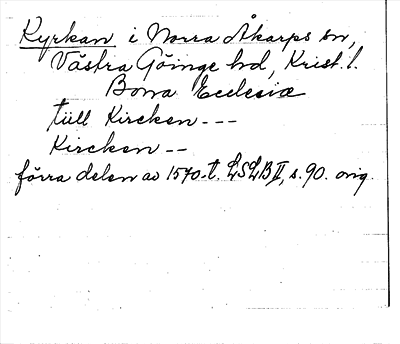 Kyrkan i Norra Åkarps sn,
Västra Göinge hd, Krist. l.
Borra Ecclesiæ
tüll Kircken ---
Kircken --
förra delen av 1570-t. LSLB II, s. 90. orig.